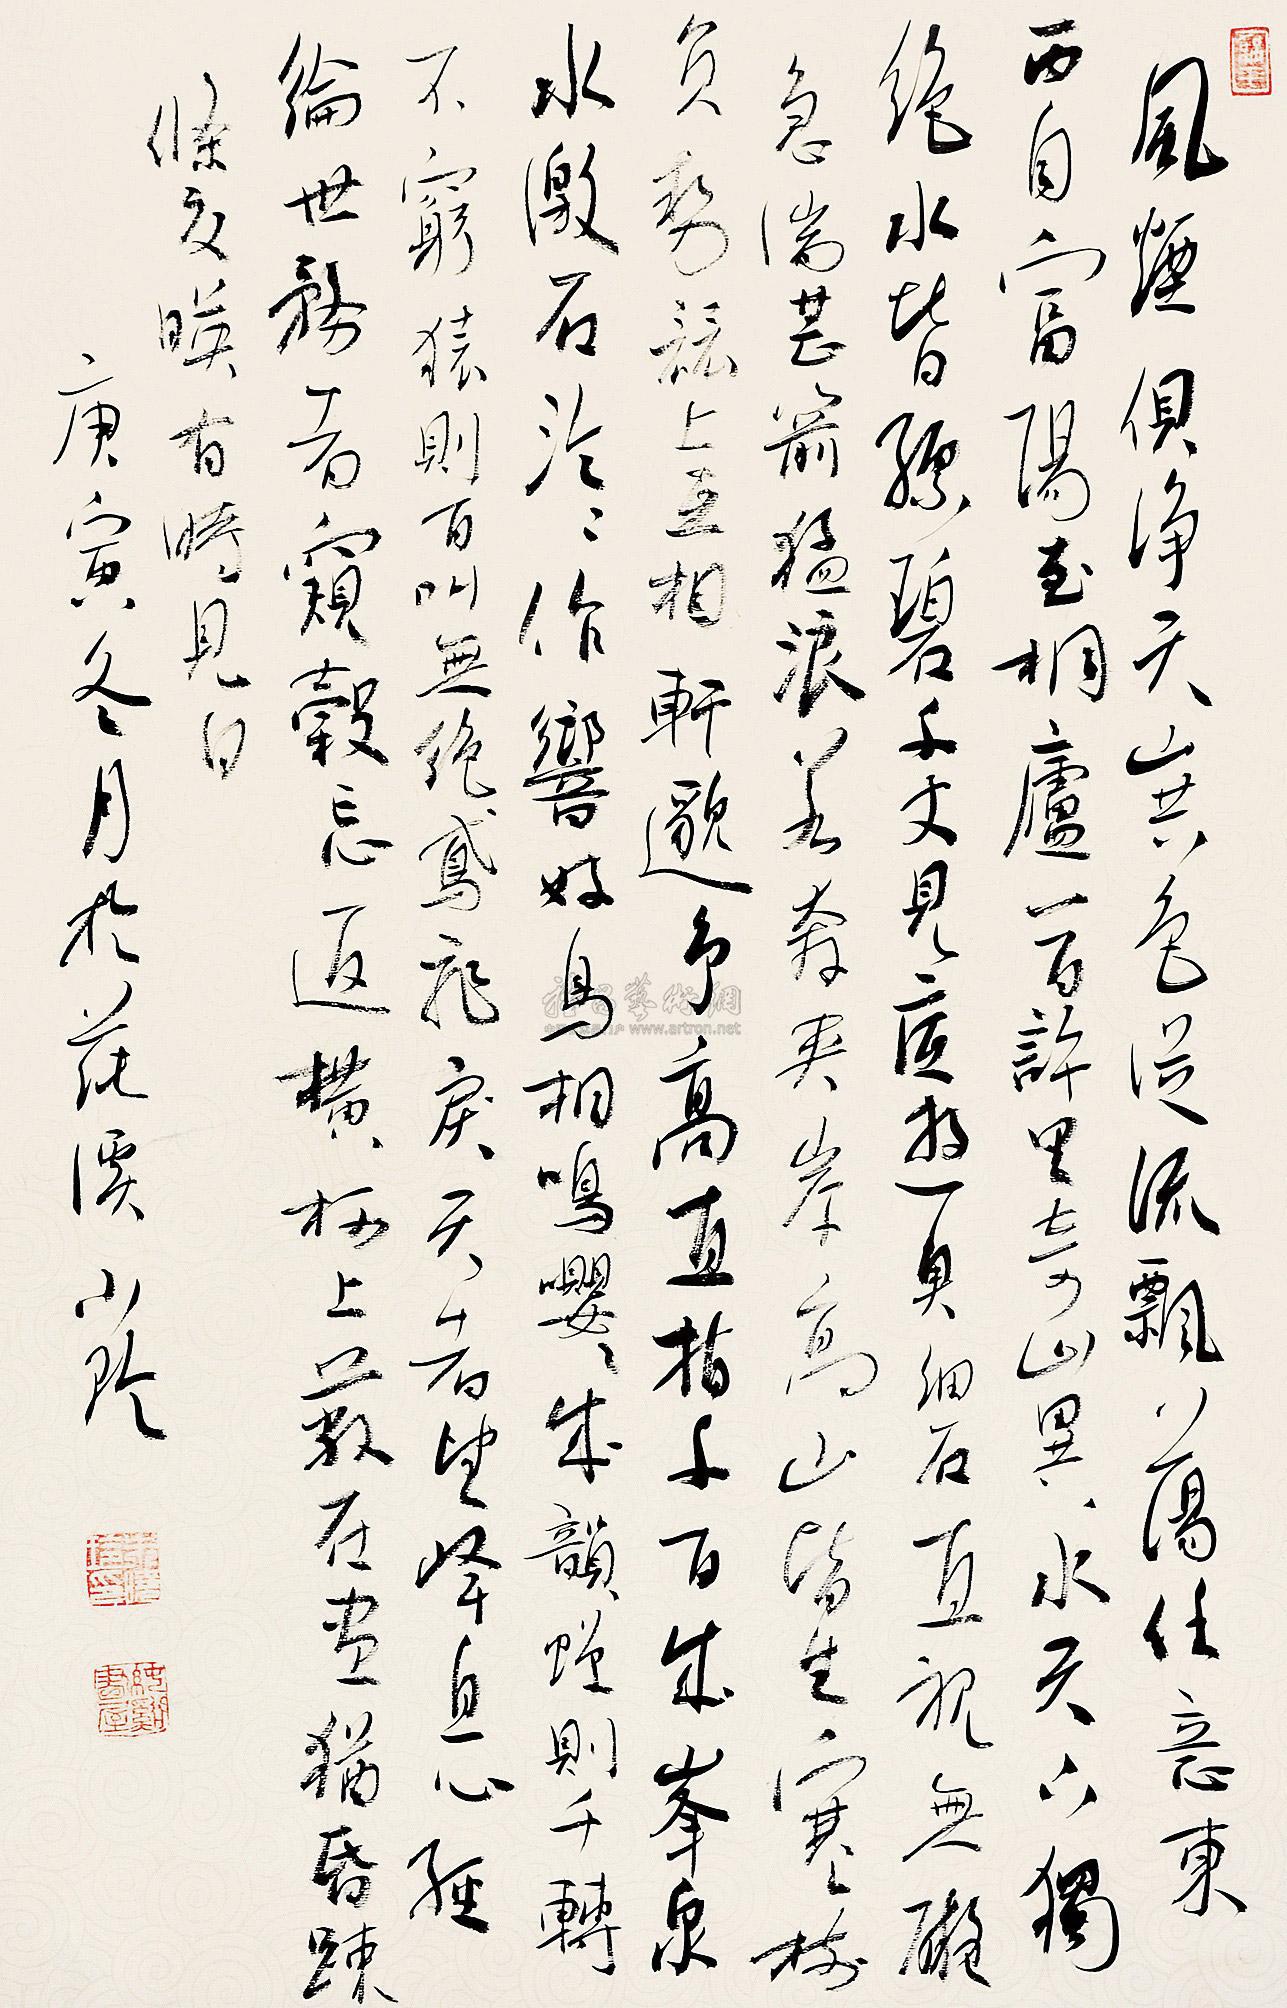 風煙俱淨天山共色從流飄蕩任意東
西自富陽至桐廬一百許里奇山異水天下獨
絶水皆縹碧千丈見底游魚細石直視無礙
急湍甚箭猛浪若奔夾岸高山皆生寒樹
負勢競上互相軒邈爭高直指千百成峯泉
水激石泠泠作響好鳥相鳴嚶嚶成韻蟬則千轉
不窮猿則百叫無絶鳶飛戾天者望峰息心經
綸世務者窺穀忘返橫柯上蔽在晝猶昏疎
條交暎有時見日
庚寅冬月於花溪小玲
www.artron.net